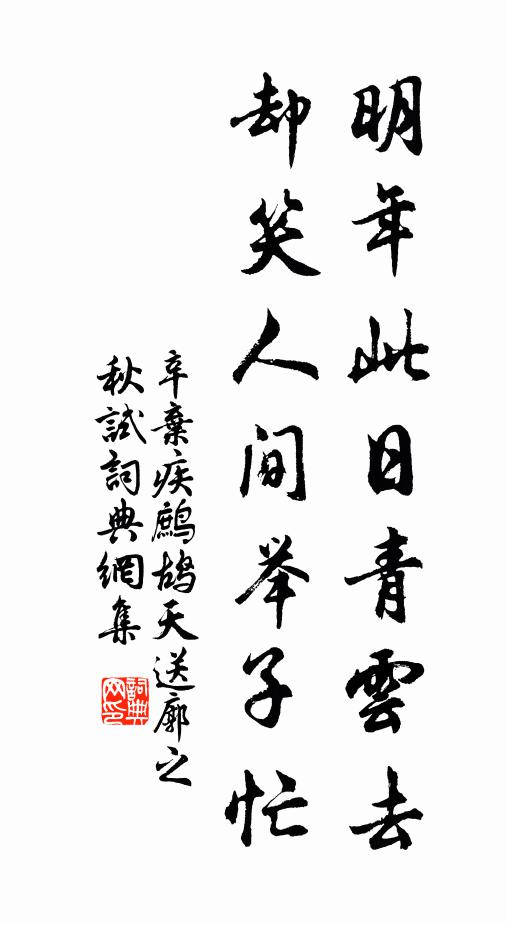 明年此日青雲去
却笑人间举子忙
辛棄疾鷓鴣天送廓之
秋試詞典網集
詞典
网印